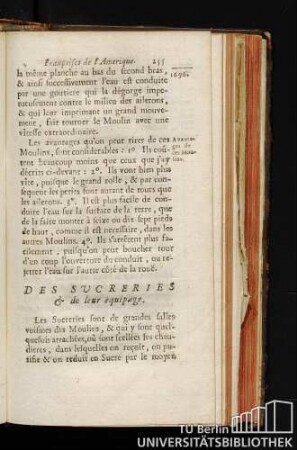 Françoises de l'Amerique. 255
la même planche au bas du second bras,
& ainsi successivement l'eau est conduite
par une goutiere qui la dégorge impe-
tueusement contre le milieu des ailerons,
& qui leur imprimant un grand mouve-
ment, fait tourner le Moulin avec une
vîtesse extraordinaire.
1696.
Les avantages qu'on peut tirer de ces
Moulins, sont considerables : 1°. Ils coû-
tent beaucoup moins que ceux que j'ay
décrits ci-devant : 2°. Ils vont bien plus
vîte, puisque le grand rolle, & par con-
sequent les petits font autant de tours que
les ailerons. 3°. Il est plus facile de con-
duire l'eau sur la surface de la terre, que
de la faire monter à seize ou dix sept pieds
de haut, comme il est necessaire, dans les
autres Moulins. 4°. Ils s'arrêtent plus fa-
cilement, puisqu'on peut boucher tout
d'un coup l'ouverture du conduit, ou re-
jetter l'eau sur l'autre côté de la rouë.
Avanta-
ges de
ces Mou-
lins.
DES SUCRERIES
& de leur équipage.
Les Sucreries sont de grandes salles
voisines des Moulins, & qui y sont quel-
quefois attachées, où sont scellées les chau-
dieres, dans lesquelles on reçoit, on pu-
rifie & on réduit en Sucre par le moyen
TU Berlin
UNIVERSITÄTSBIBLIOTHEK